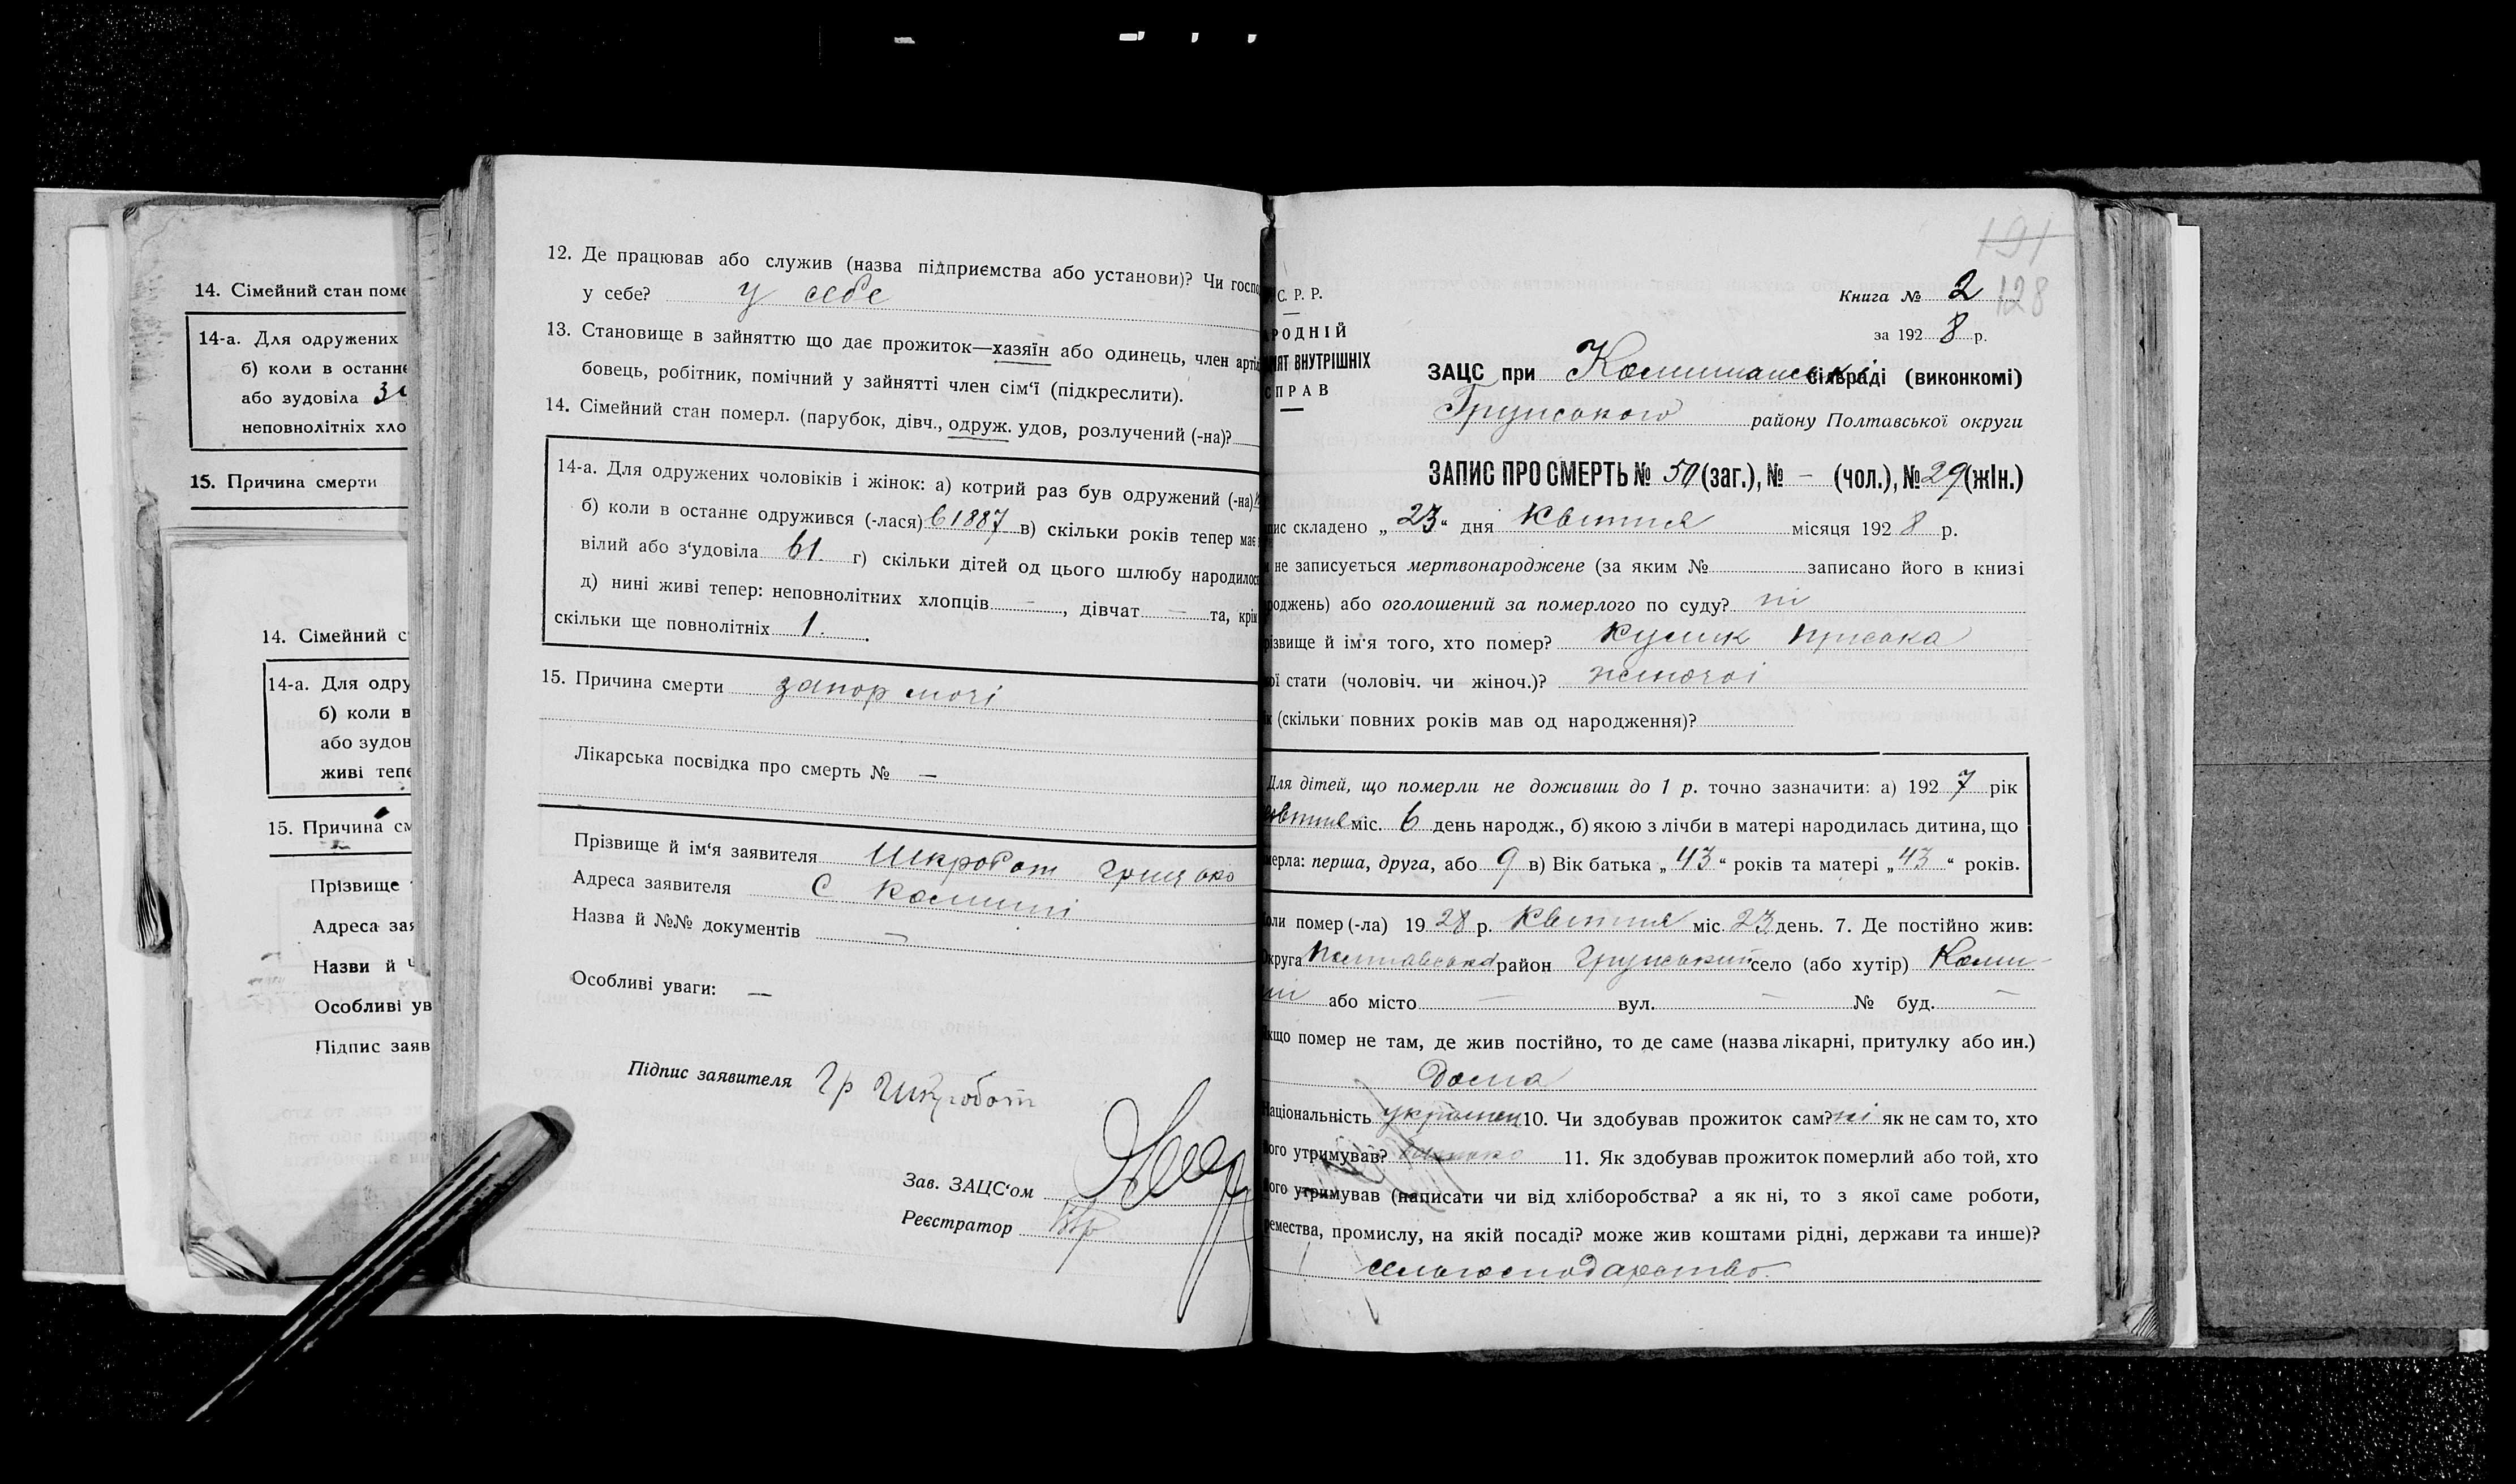 14. Сімейний стан поме
14-а. Для одружених
б) коли в останнє
або зудовіла
неповнолітніх хло
15. Причина смерти
14. Сімейний с
14-а. Для одру
б) коли в
або зудов
живі тепе
15. Причина см
Прізвище
Адреса зая
Назви й
Особливі ув
Підпис заяв
12. Де працював або служив (назва підприємства або установи)? Чи госпо
у себе? у себе
13. Становище в зайняттю що дає прожиток—хазяїн або одинець, член арті
бовець, робітник, помічний у зайнятті член сім'ї (підкреслити).
14. Сімейний стан померл. (парубок, дівч., одруж. удов, розлучений (-на)?
14-а. Для одружених чоловіків і жінок: а) котрий раз був одружений (-на)
б) коли в останнє одружився (-лася) в 1887 в) скільки років тепер має
вілий або з'удовіла 61. г) скільки дітей од цього шлюбу народилося
д) нині живі тепер: неповнолітних хлопців — , дівчат — та, крім
скільки ще повнолітніх 1.
15. Причина смерти запор мочі
Лікарська посвідка про смерть № —
Прізвище й ім'я заявителя Шкробот Грицько
Адреса заявителя С Комиші
Назва й №№ документів —
Особливі уваги: —
Підпис заявителя Гр Шкробот
Зав. ЗАЦС'ом
Реєстратор
191
128
Книга № 2
за 1928 р.
С. Р. Р.
РОДНІЙ
ІЯТ ВНУТРІШНІХ
СПРАВ
ЗАЦС при Комишанській сільраді (виконкомі)
Грунського району Полтавської округи
ЗАПИС ПРО СМЕРТЬ № 50 (заг.), № — (чол.), № 29 (жін.)
пис складено „23" дня Квітня місяця 1928 р.
и не записується мертвонароджене (за яким № записано його в книзі
роджень) або оголошений за померлого по суду? ні
різвище й ім'я того, хто помер? Кулик Приська
кої стати (чоловіч. чи жіноч.)? жіночої
ік (скільки повних років мав од народження)?
Для дітей, що померли не доживши до 1 р. точно зазначити: а) 1927 рік
міс. 6 день народж., б) якою з лічби в матері народилась дитина, що
мерла: перша, друга, або 9 в) Вік батька „43" років та матері „43" років.
оли помер (-ла) 1928 р. Квітня міс. 23 день. 7. Де постійно жив:
Округа Полтавська район Грунський село (або хутір) Коми-
ші або місто — вул. — № буд. —
кщо помер не там, де жив постійно, то де саме (назва лікарні, притулку або ин.)
Дома
Національність українец 10. Чи здобував прожиток сам? ні як не сам то, хто
його утримував? батько 11. Як здобував прожиток померлий або той, хто
його утримував (написати чи від хліборобства? а як ні, то з якої саме роботи,
ремества, промислу, на якій посаді? може жив коштами рідні, держави та инше)?
сельгосподарство.